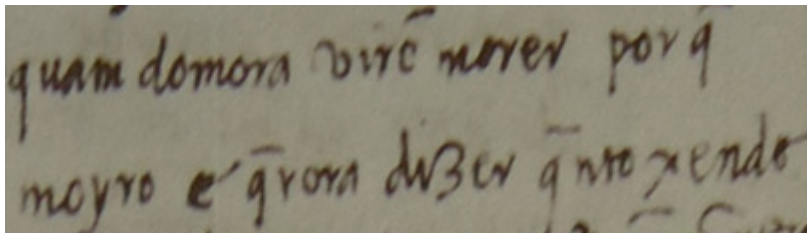 quam domora virẽ morer porq̃
moyro e q̃rora diʒer q̃nto rende